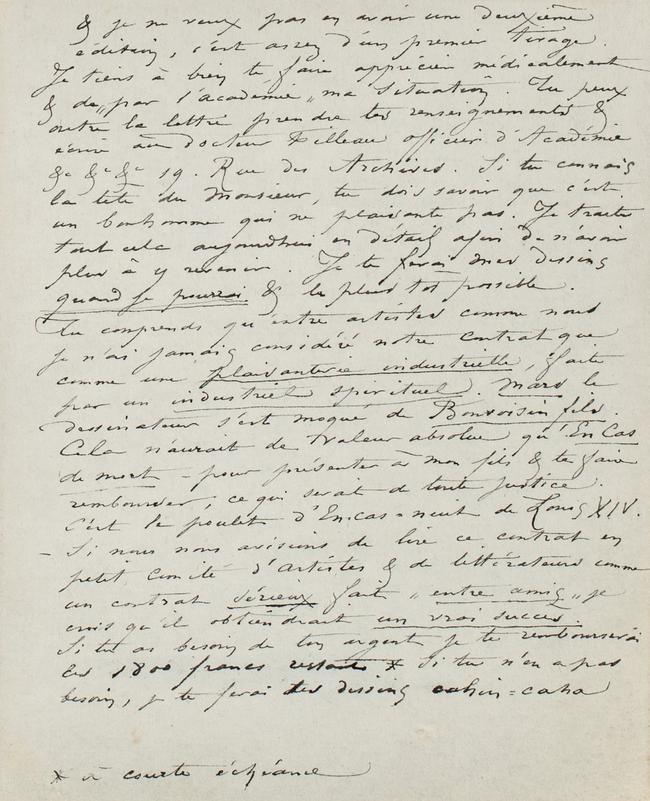 & je ne veux pas en avoir une deuxième
édition, c'est assez d'un premier tirage.
Je tiens à bien te faire apprécier médicalement
& de „par l'académie„ ma situation. Tu peux
outre la lettre prendre tes renseignements &
écrire au docteur Filleau officier d'Académie
&c &c &c 19. Rue des Archives. Si tu connais
la tête du Monsieur, tu dois savoir que c'est
un bonhomme qui ne plaisante pas. Je traite
tout cela aujourdhui en détail afin de n'avoir
plus à y revenir. Je te ferai mes dessins
quand je pourrai & le plus tôt possible.
Tu comprends qu'entre artistes comme nous
je n'ai jamais considéré notre contrat que
comme une plaisanterie industrielle, faite
par un industriel spirituel. Mars le
dessinateur s'est moqué de Bonvoisin fils.
Cela n'aurait de valeur absolue qu'En Cas
de mort – pour présenter à mon fils & te faire
rembourser, ce qui serait de toute justice.
C'est le poulet d'En-cas=nuit de Louis XIV.
– Si nous nous avisions de lire ce contrat en
petit comité d'artistes & de littérateurs comme
un contrat sérieux fait „entre amis„ je
crois qu'il obtiendrait un vrai succès.
Si tu as besoin de ton argent je te rembourserai
les 1800 francs restants x Si tu n'en a pas
besoin, je te ferai tes dessins cahin=caha
x à courte échéance